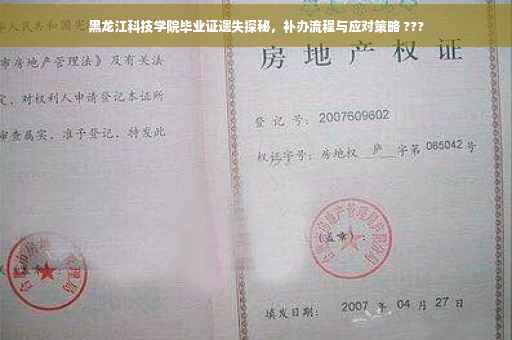 黑龙江科技学院毕业证遗失探秘，补办流程与应对策略 ???
人民共和国宪
市房地产管理法》及有关法
定，对权利人申请登记本证所
审查属实，准予登记，特发此
房地产权证
登记号：2007609602
权证字号：房地权 庐 字第 085042 号
（盖章）：
填发日期： 2007 年 04 月 27 日